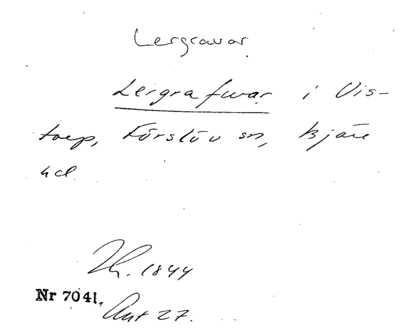 Lergravar
Lergrafwar i Vis-
torp, Förslöv sn, Bjäre
hd.
Lh. 1844
Nr 7041.
Ant 27.